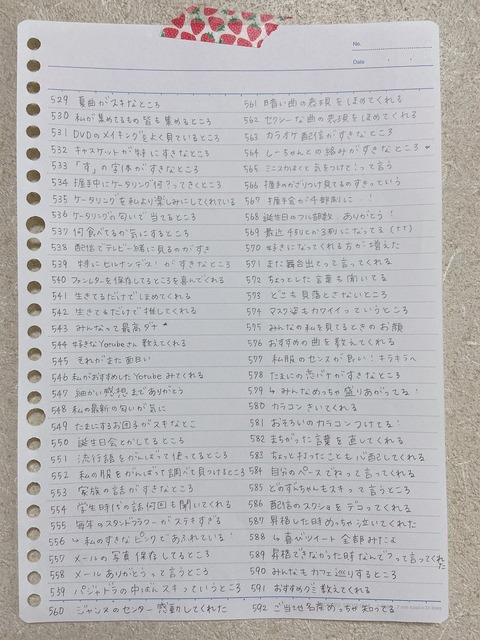 No.
Date
529 夏曲がスキなところ
530 私が集めてるもの皆も集めるところ
531 DVDのメイキングをよく見ているところ
532 キャスケットが特にすきなところ
533 「す」の字体がすきなところ
534 握手中にケータリング何?ってきくところ
535 ケータリングを私より楽しみにしてくれている
536 ケータリングの匂いで当てるところ
537 何食べてるか気にするところ
538 配信でテレビ一緒に見るのがすき
539 特にヒルナンデス!がすきなところ
540 ファンレターを保存してるところを喜んでくれる
541 生きてるだけでほめてくれる
542 生きてるだけで推してくれる
543 みんなって最高ダナ
544 好きなYoutubeさん教えてくれる
545 それがまた面白い
546 私がおすすめしたYoutubeみてくれる
547 細かい感想までありがとう
548 私の最新の匂いが気に
549 たまにするお団子がスキなとこ
550 誕生日会とかしてるところ
551 流行語をがんばって使ってるところ
552 私の服をがんばって調べて見つけるところ
553 家族の話がすきなところ
554 学生時代の話何回も聞いてくれる
555 毎年のスタンドフラワーがステキすぎる
556 ↳私のすきなピンクであふれている!
557 メールの写真保存してるところ
558 メールありがとうって言うところ
559 パジャドラの中はんスキっていうところ
560 ジャンヌのセンター感動してくれた
561 暗い曲の表現をほめてくれる
562 セクシーな曲の表現をほめてくれる
563 カラオケ配信がすきなところ
564 しーちゃんとの絡みがすきなところ
565 ミニスカはくと気をつけてって言う
566 握手のかざりつけ見てるのすきっていう
567 握手会が4部制に…!
568 誕生日のフル部数、ありがとう!
569 最近4SUとか3制になってる(TT)
570 好きになってくれる方が増えた
571 また舞台出てって言ってくれる
572 ちょっとした言葉も聞いてる
573 どこも見落とさないところ
574 マスク姿もカワイイっていうところ
575 みんなの私を見てるときのお顔
576 おすすめの曲を教えてくれる
577 私服のセンスが良い!キラキラへ
578 たまにの恋バナがすきなところ
579 ↳みんなめっちゃ盛りあがってる!
580 カラコンきいてくれる
581 おそろいのカラコンつけてる!
582 まちがった言葉を直してくれる
583 ちょっと打ったことも心配してくれる
584 自分のペースでねって言ってくれる
585 どのずんちゃんもスキって言うところ
586 配信のスクショをデコってくれる
587 昇格した時めっちゃ泣いてくれた
588 ↳喜びツイート全部みたよ
589 昇格できなかった時なんで?って言ってくれた
590 みんなもカフェ巡りするところ
591 おすすめグミ教えてくれる
592 ご当地名産めっちゃ知ってる